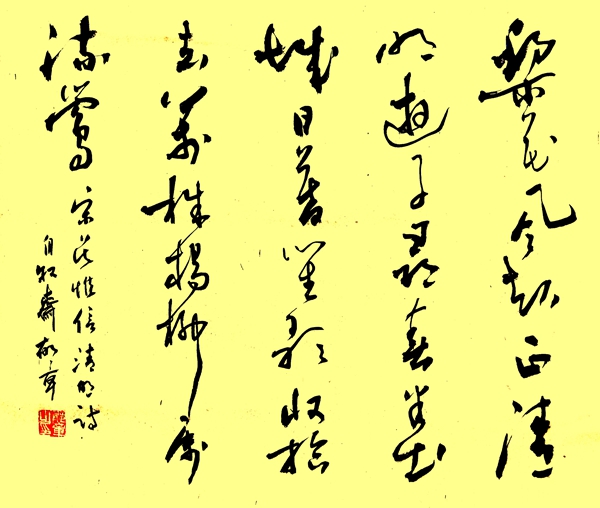 梨花風起正清
明遊子尋春半出
城日暮笙歌收拾
去萬株楊柳屬
流鶯 宋吴惟信清明詩
自知齋 章